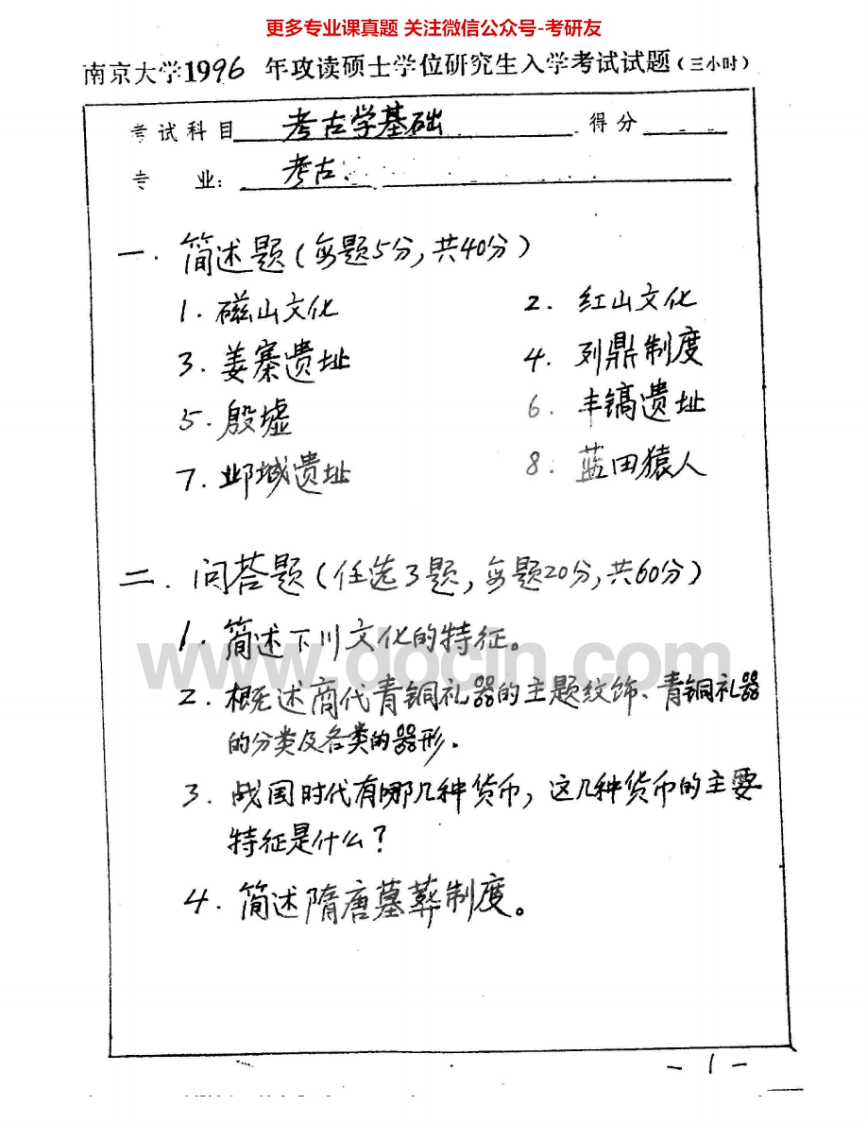 更多专业课真题 关注微信公众号-考研友
南京大学1996 年攻读硕士学位研究生入学考试试题(三小时)
考试科目 考古学基础 得分
专 业: 考古
一. 简述题(每题5分,共40分)
1. 磁山文化 2. 红山文化
3. 姜寨遗址 4. 列鼎制度
5. 殷墟 6. 丰镐遗址
7. 邺城遗址 8. 蓝田猿人
二. 问答题(任选3题,每题20分,共60分)
1. 简述下川文化的特征。
www.docin.com
2. 概述商代青铜礼器的主题纹饰、青铜礼器
的分类及各类的器形.
3. 战国时代有哪几种货币,这几种货币的主要
特征是什么?
4. 简述隋唐墓葬制度。
- 1 -